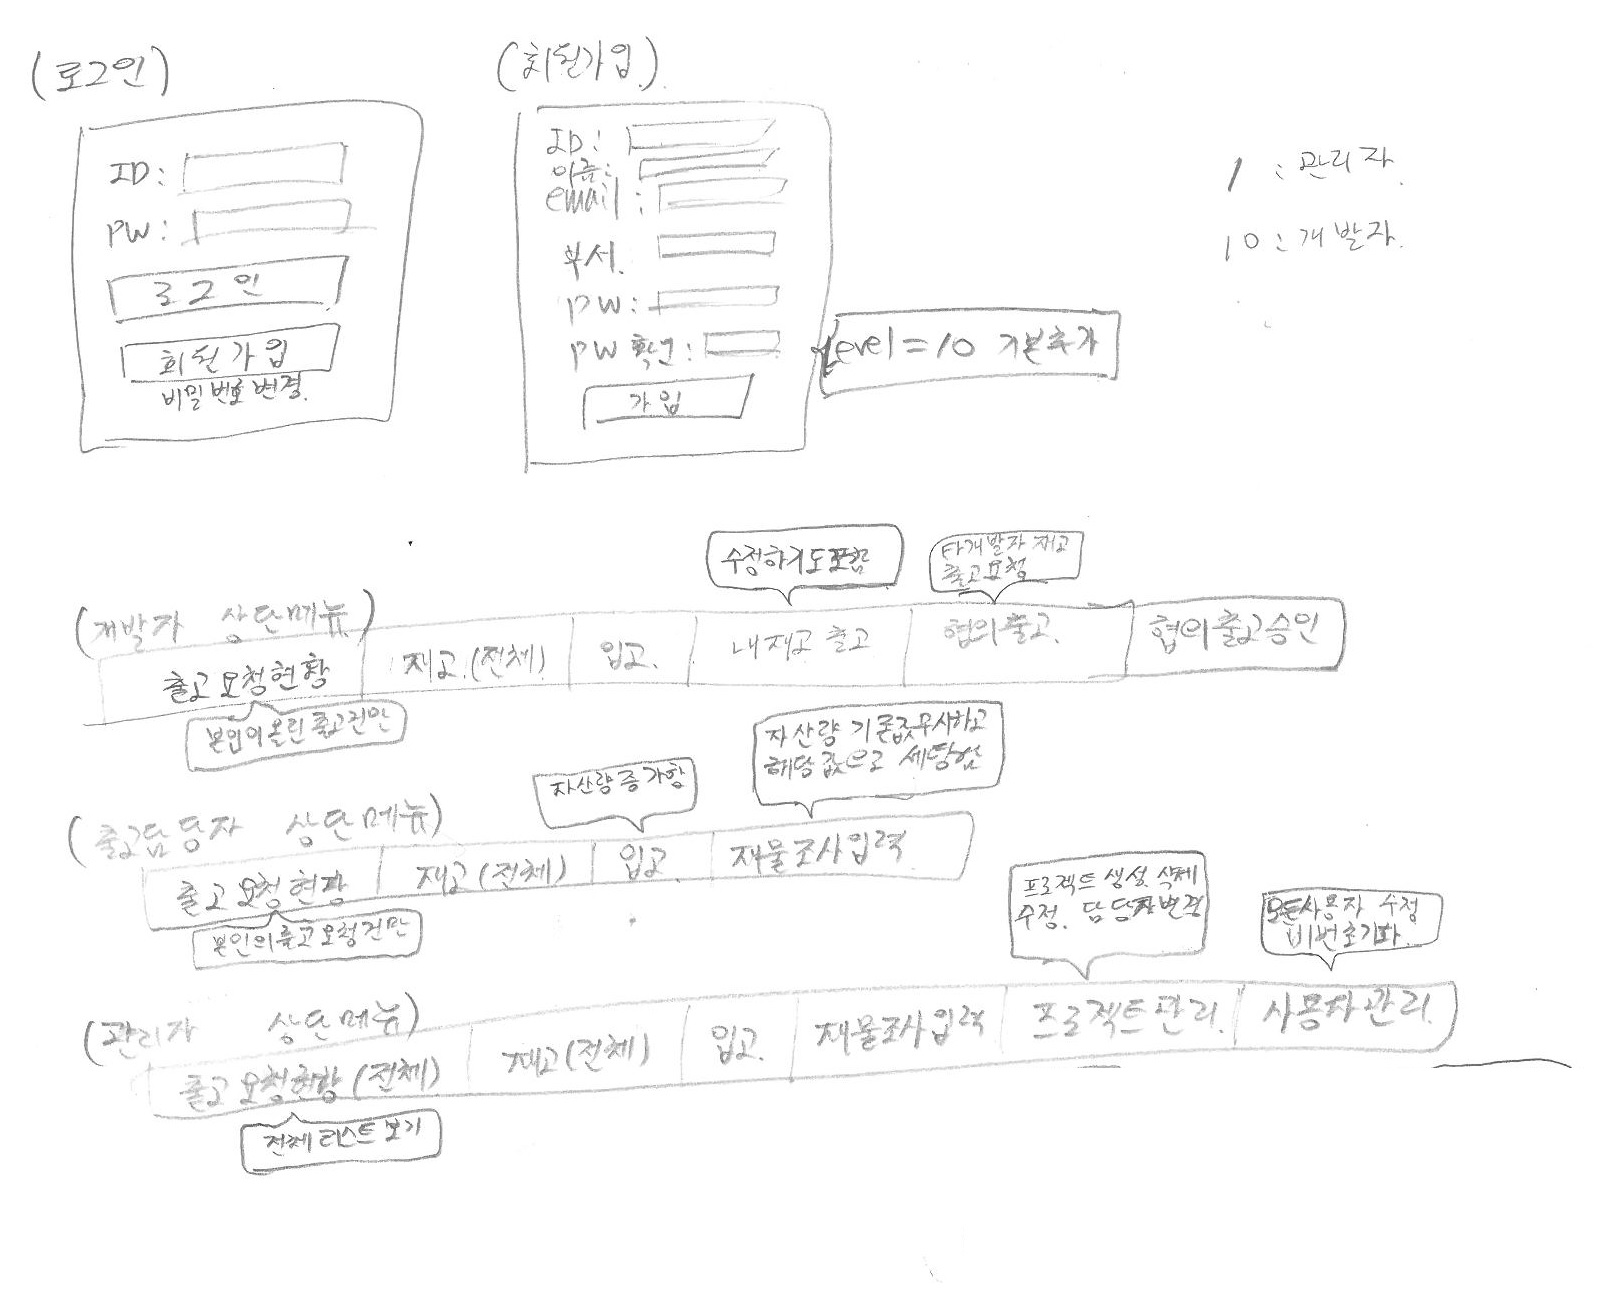 (로그인)
ID:
PW:
로그인
회원가입
비밀번호변경.
(회원가입)
ID:
이름:
email:
부서.
PW:
PW 확인:
가입
level=10 기본추가
1 : 관리자.
10 : 개발자.
(개발자 상단메뉴)
수정하기도포함
타개발자 재고
출고요청
출고요청현황
재고.(전체)
입고.
내재고 출고
협의출고.
협의출고승인
본인이올린출고건만
(출고담당자 상단메뉴)
자산량증가함
자산량 기존값무시하고
해당값으로 세팅함
출고요청현황
재고(전체)
입고
재물조사입력
본인의출고요청건만
(관리자 상단메뉴)
프로젝트 생성. 삭제
수정. 담당자변경
모든사용자 수정
비번초기화.
출고요청현황(전체)
재고(전체)
입고.
재물조사입력
프로젝트관리.
사용자관리.
전체리스트보기